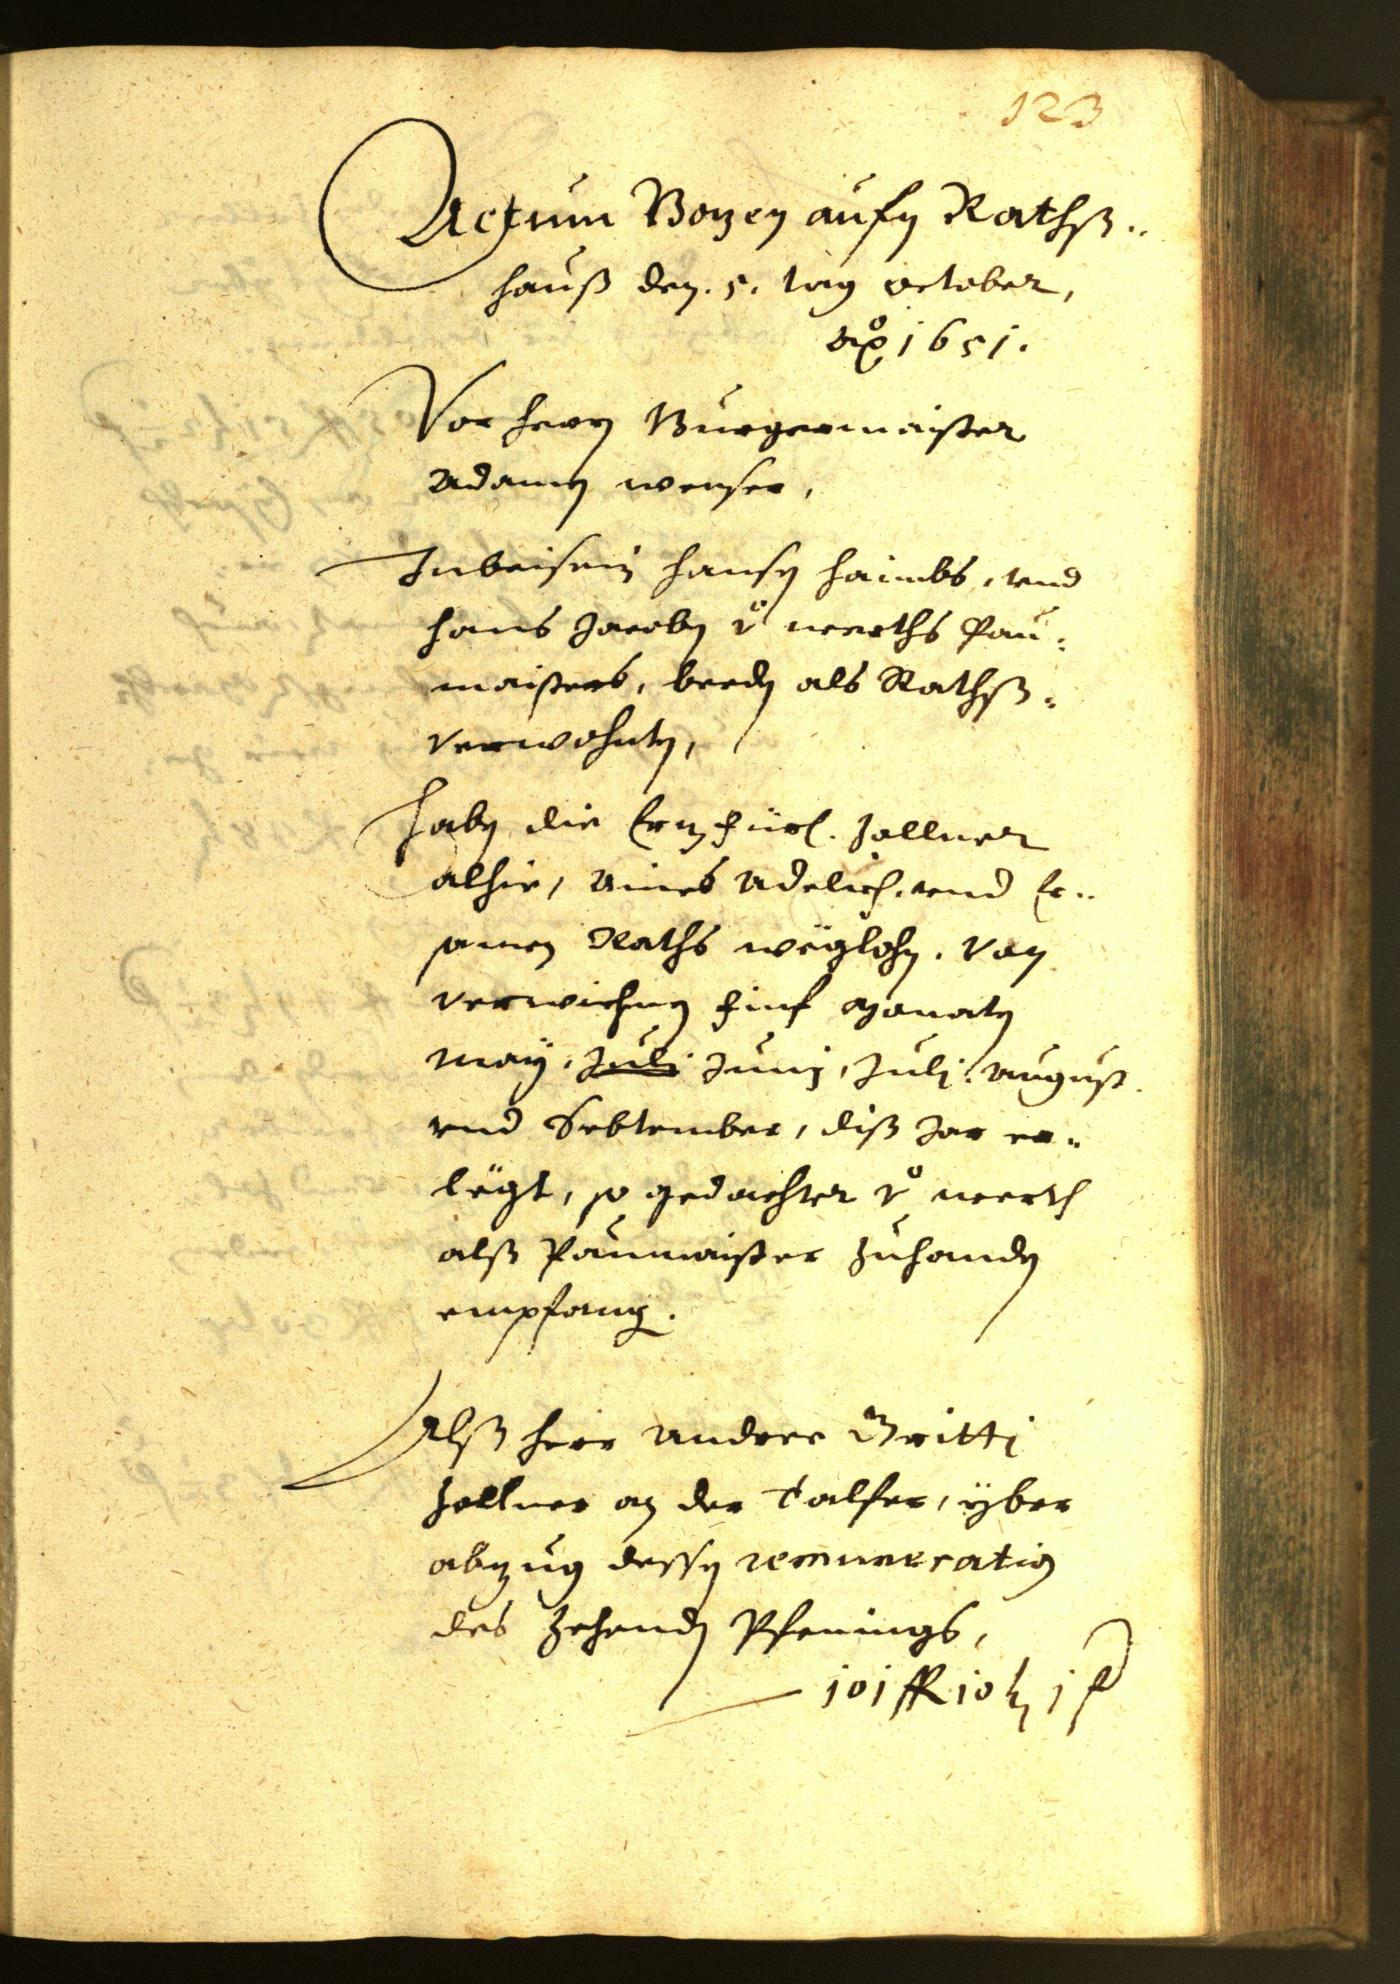 123
Actum Botzen aufn Rathß„
hauß den .5. tag october,
ao 1651.
Vor herrn Burgermaister
Adamen wenser,
In beisein hansen haimbs, vnd
hans Jacoben v° werths Pau„
maisters, beeden als Rathß„
verwohnten,
haben die Ertzfürl. zollner
alhie, aines Adelich. vnd Er„
samen Raths wëglohn, von
verwichnen finf Monaten
May, Juli Junj, Julj, august
vnd September, diß Jar er„
lëgt, so gedachter v° werth
alß Paumaister zuhanden
empfang.
Alß herr Andree Britti
zollner an der Talfer, yber
abzug dessen remuneration
des zehenden Pfenings,
101 fl 10 kr 1 f